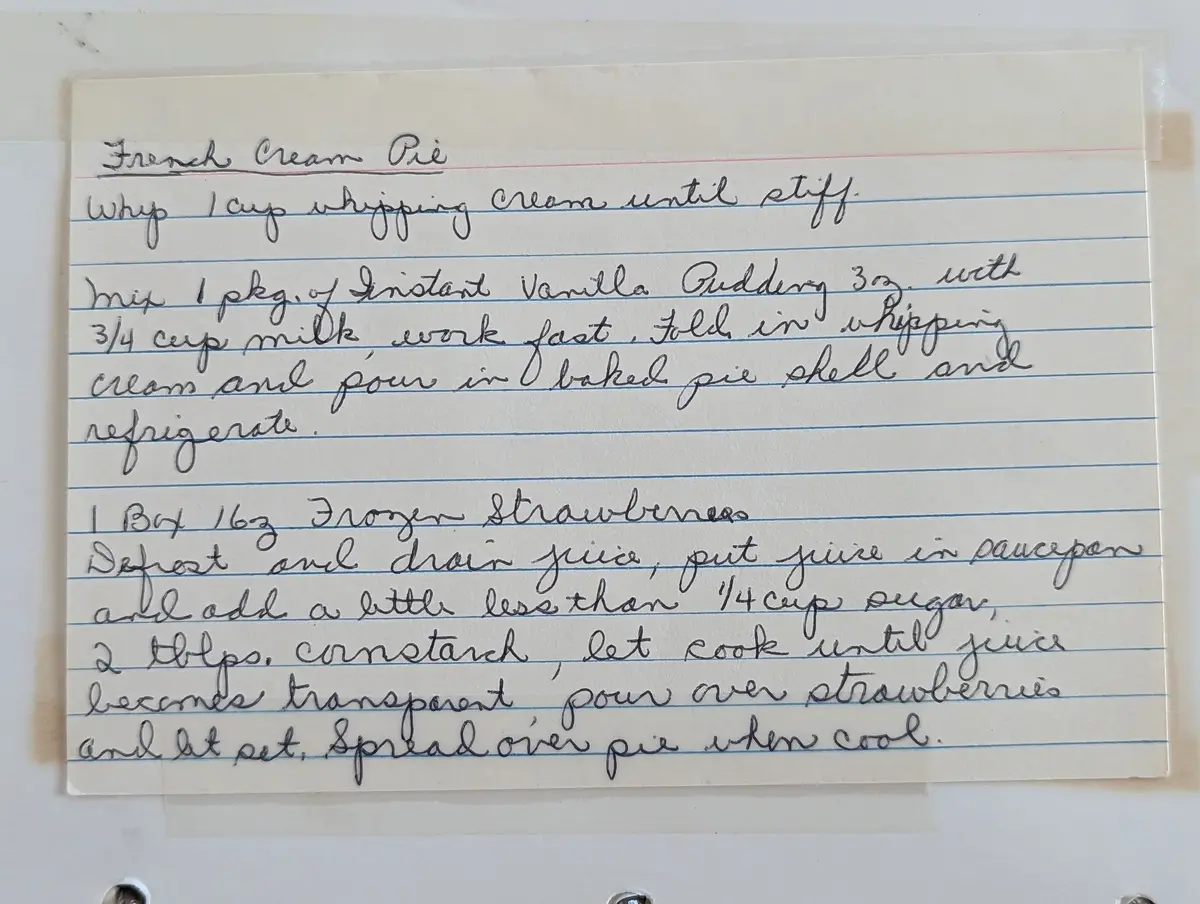 French Cream Pie
Whip 1 cup whipping cream until stiff.
Mix 1 pkg. of Instant Vanilla Pudding 3oz. with
3/4 cup milk, work fast. Fold in whipping
cream and pour in baked pie shell and
refrigerate.
1 Box 16oz Frozen Strawberries
Defrost and drain juice, put juice in saucepan
and add a little less than 1/4 cup sugar,
2 tblps. cornstarch, let cook until juice
becomes transparent, pour over strawberries
and let set. Spread over pie when cool.